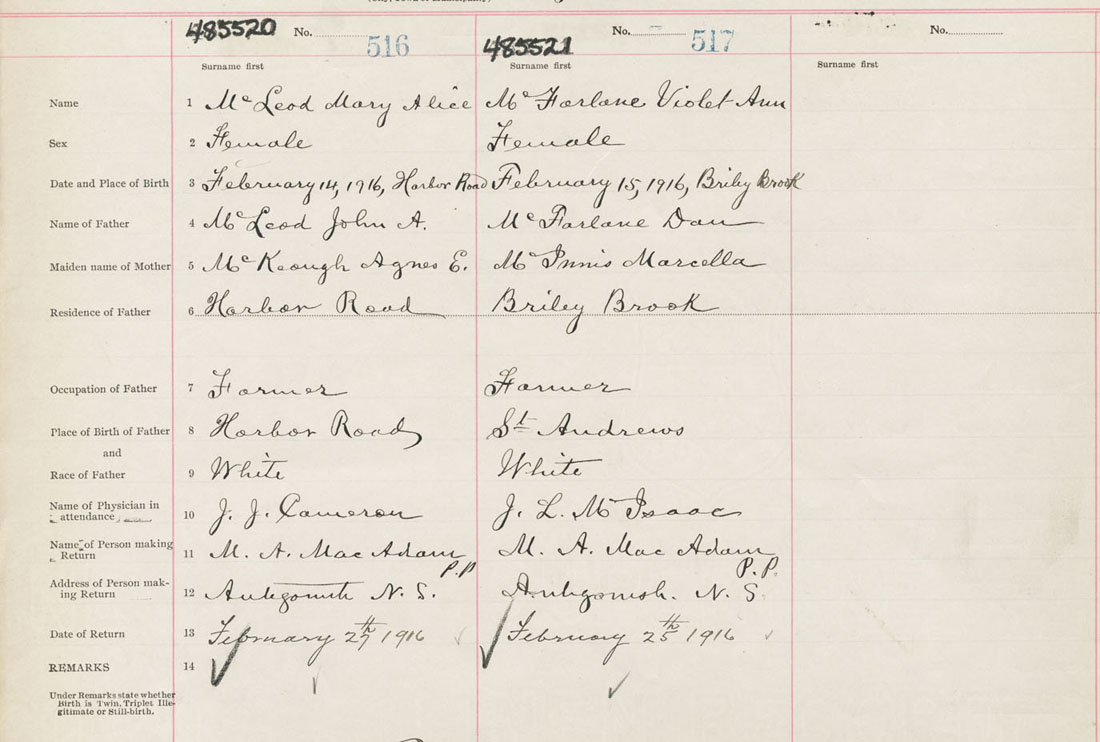 485520 No. 516 485521 No. 517 No.
Surname first Surname first Surname first
Name 1 Mc Leod Mary Alice Mc Farlane Violet Ann
Sex 2 Female Female
Date and Place of Birth 3 February 14, 1916, Harbor Road February 15, 1916, Briley Brook
Name of Father 4 Mc Leod John A. Mc Farlane Dan
Maiden name of Mother 5 Mc Keough Agnes E. Mc Innis Marcella
Residence of Father 6 Harbor Road Briley Brook
Occupation of Father 7 Farmer Farmer
Place of Birth of Father 8 Harbor Road St Andrews
and
Race of Father 9 White White
Name of Physician in
attendance 10 J. J. Cameron J. L. Mc Isaac
Name of Person making
Return 11 M. A. Mac Adam P.P. M. A. Mac Adam P.P.
Address of Person mak-
ing Return 12 Antigonish N. S. Antigonish. N. S.
Date of Return 13 February 27th 1916 February 25th 1916
REMARKS 14
Under Remarks state whether
Birth is Twin, Triplet Ille-
gitimate or Still-birth.